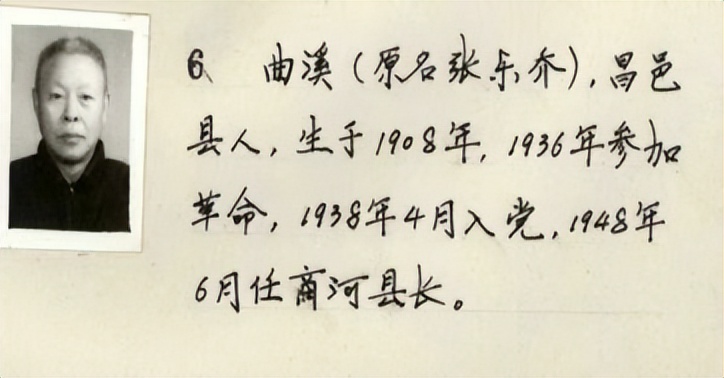 6、曲溪（原名张乐乔），昌邑
县人，生于1908年，1936年参加
革命，1938年4月入党，1948年
6月任商河县长。